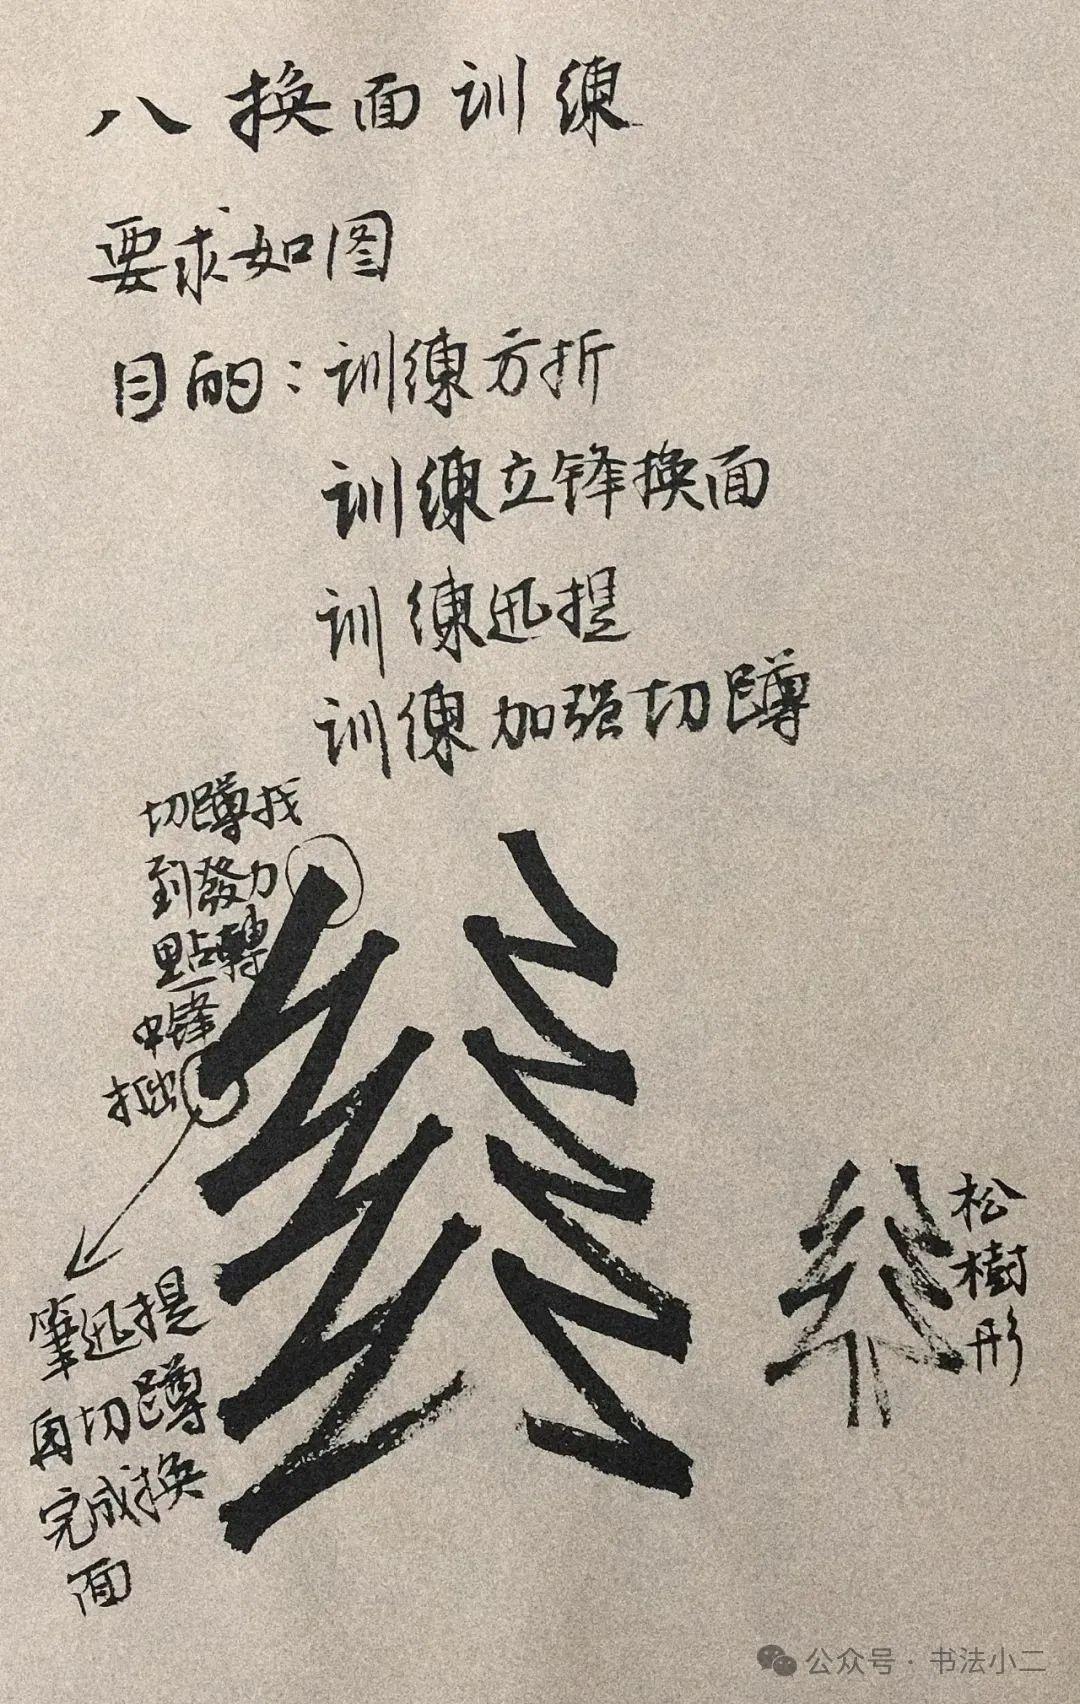 八换面训練
要求如图
目的：训練方折
训練立锋换面
训練迅提
训練加强切蹲
切蹲找
到發力
點轉
中锋
拙出
筆迅提
再切蹲
完成换
面
松
樹
形
公众号·书法小二